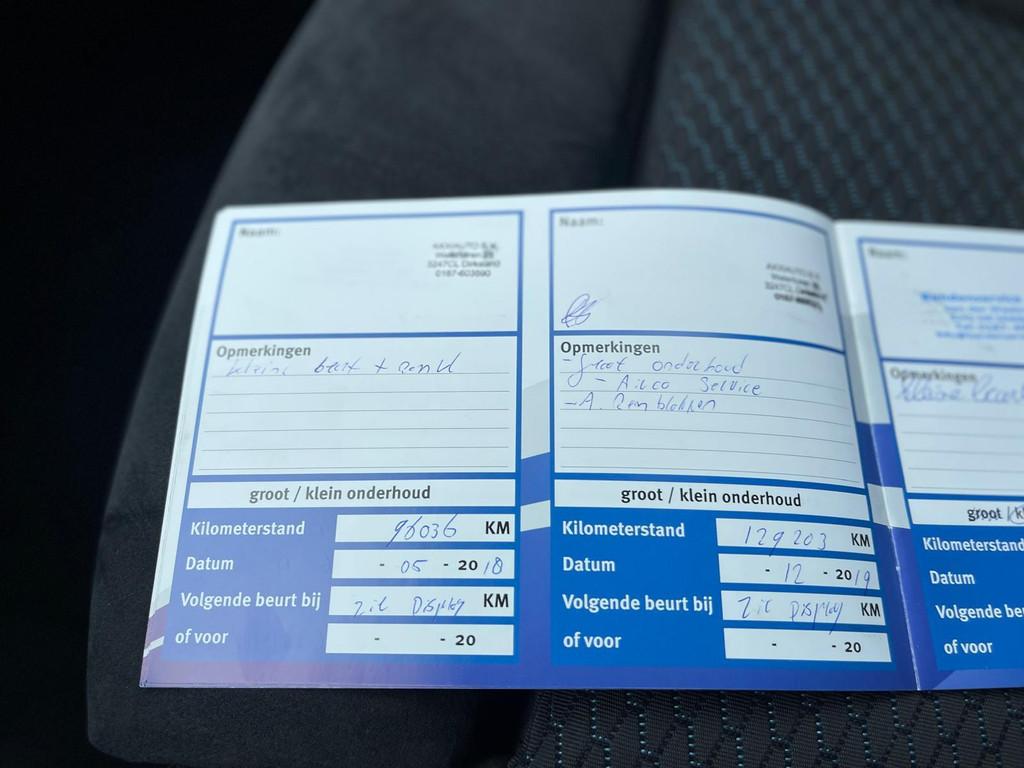 Naam:
3247CL Dirksland
0187-603890
Opmerkingen
kleine beurt +
groot / klein onderhoud
Kilometerstand 96036 KM
Datum - 05 - 2018
Volgende beurt bij zie Display KM
of voor - - 20
Naam:
Opmerkingen
- Groot onderhoud
- Airco Service
- A. Remblokken
groot / klein onderhoud
Kilometerstand 129203 KM
Datum - 12 - 2019
Volgende beurt bij zie Display KM
of voor - - 20
Naam:
Opmerkingen
kleine
groot / kl
Kilometerstand
Datum
Volgende be
of voor